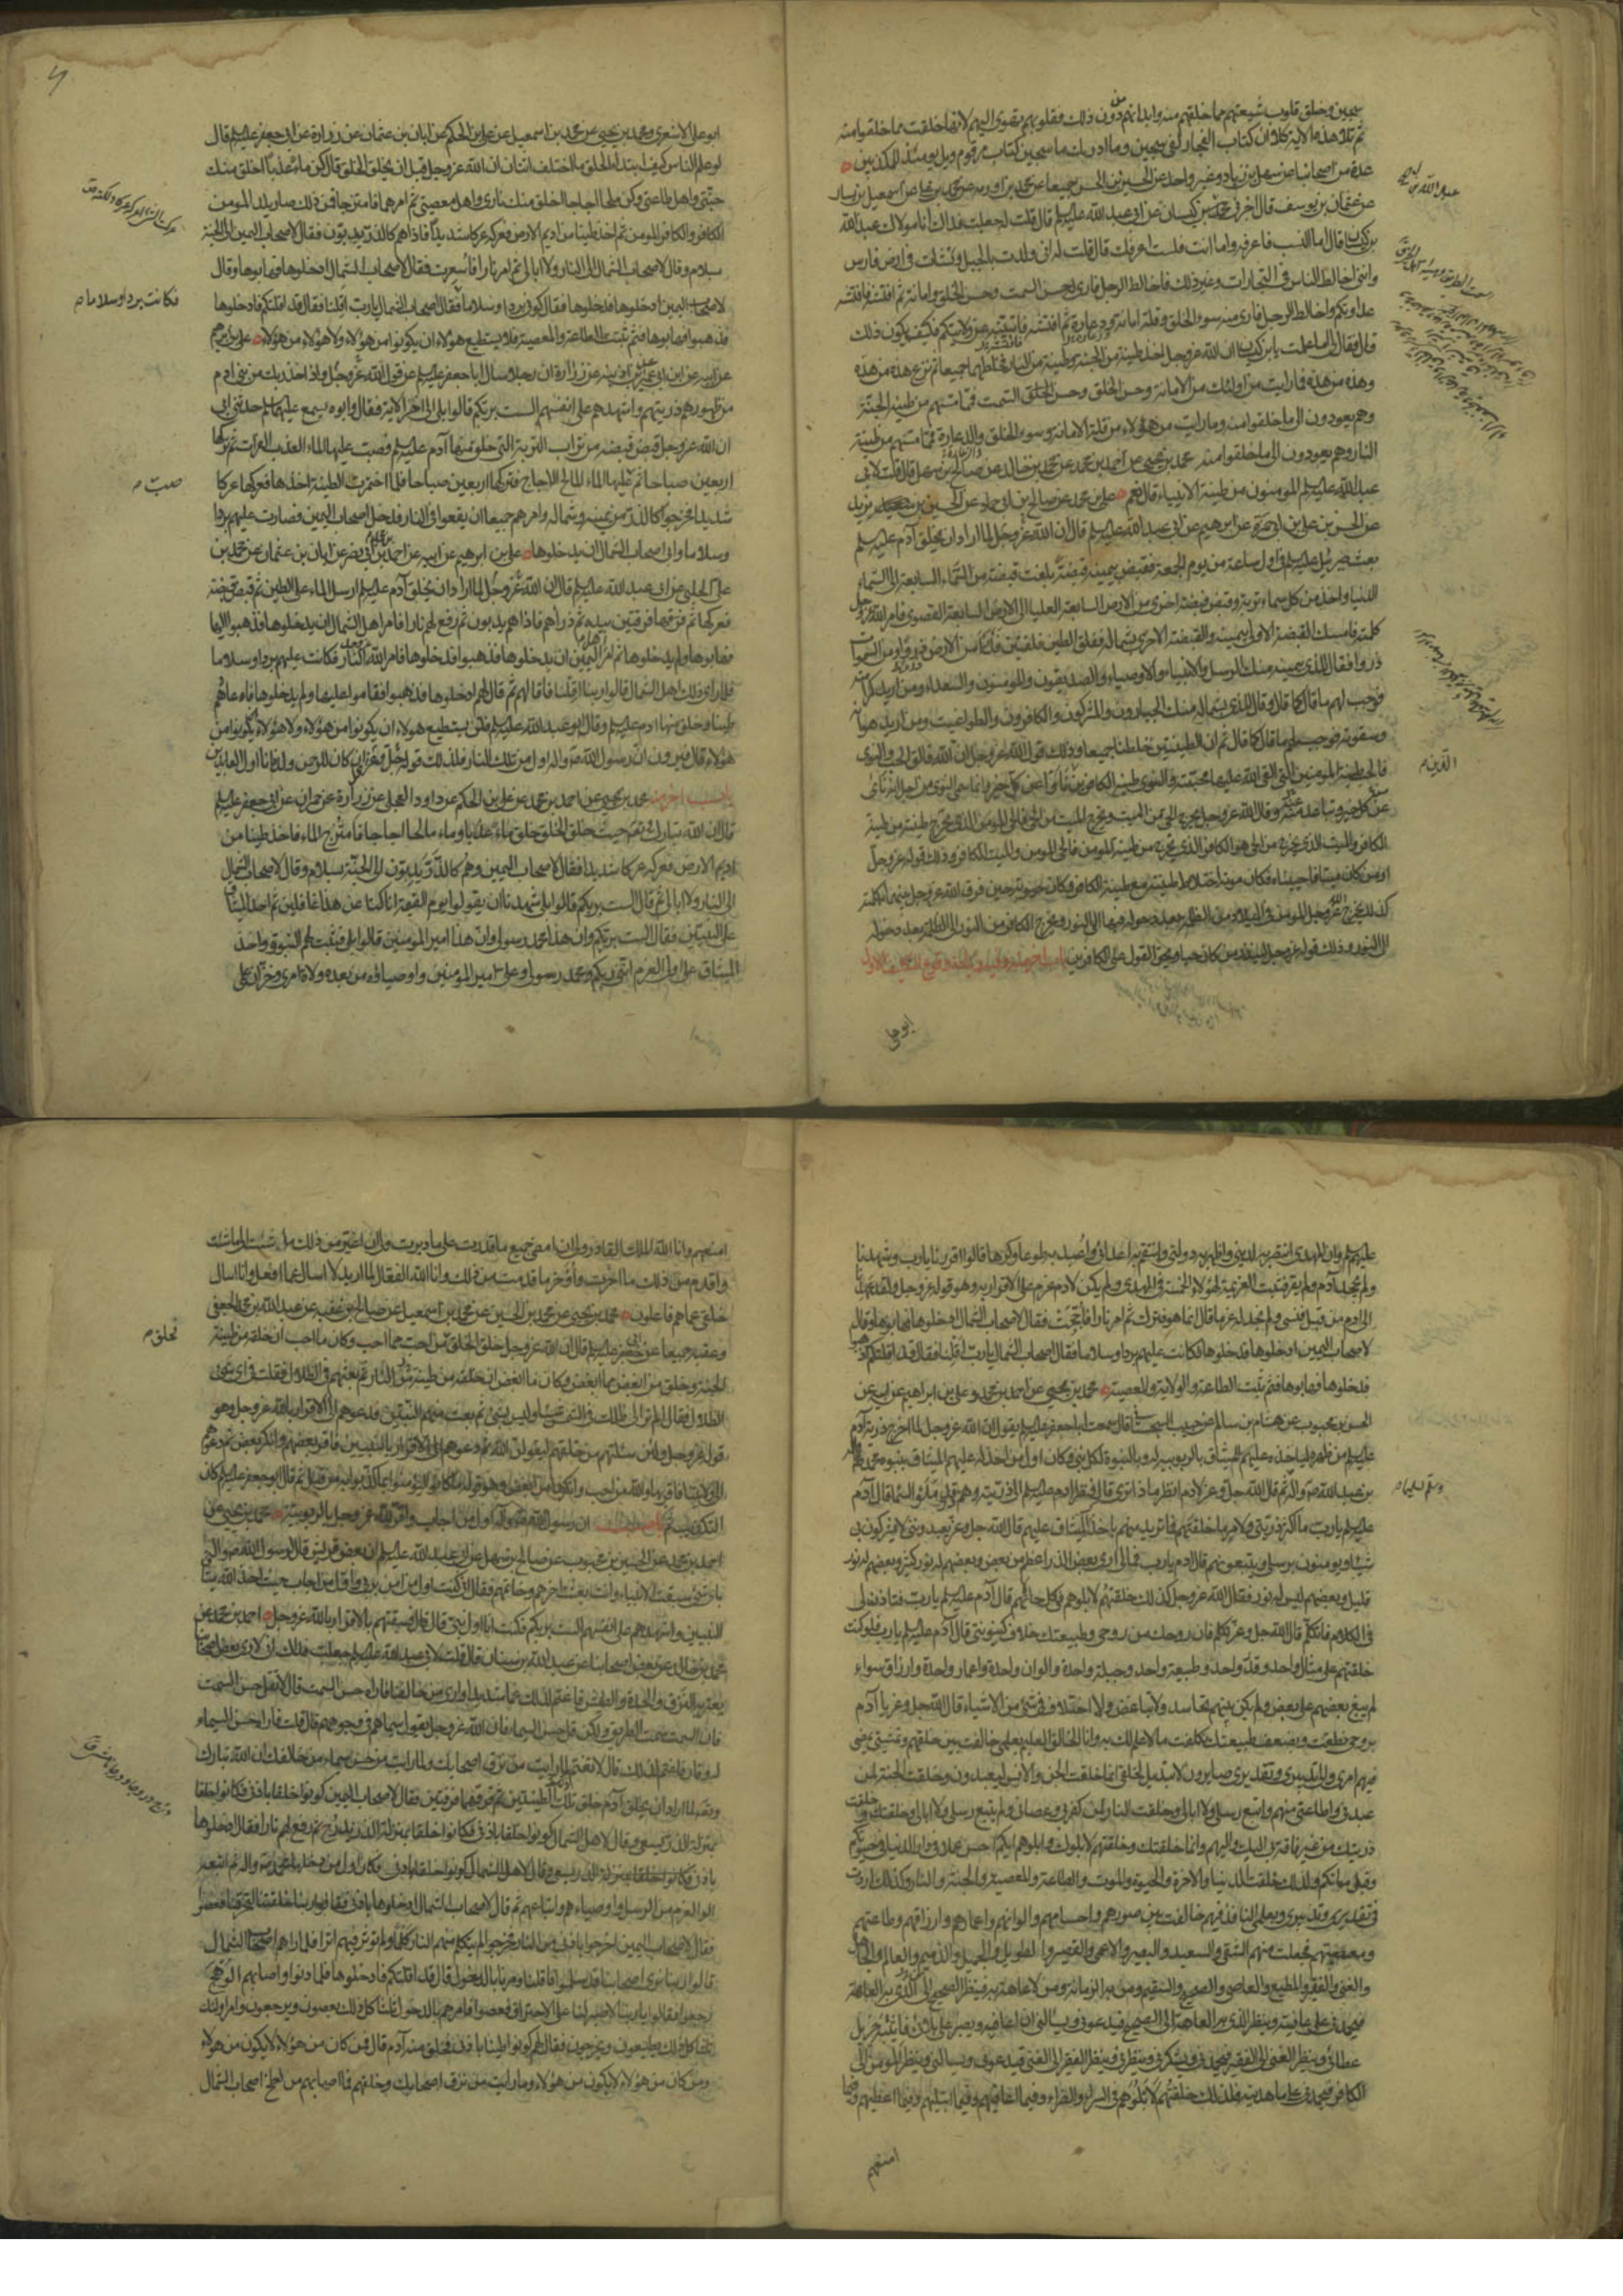 سجين وخلق قلوب شيعتهم مما خلقهم منه وابدانهم من دون ذلك فقلوبهم تهوى اليهم لانها خلقت مما خلقوا منه
ثم تلا هذه الاية كلا ان كتاب الفجار لفى سجين وما ادريك ما سجين كتاب مرقوم ويل يومئذ للمكذبين
عدة من اصحابنا عن سهل بن زياد وغير واحد عن الحسين بن الحسن جميعا عن محمد بن اورمه عن محمد بن على عن اسمعيل بن يسار
عن عثمان بن يوسف قال اخبرنى عبد الله بن كيسان عن ابى عبد الله عليه السلم قال قلت له جعلت فداك انا مولاك عبد الله
بن كيسان قال اما النسب فاعرفه واما انت فلست اعرفك قال قلت له انى ولدت بالجبل ونشات فى ارض فارس
وانى اخالط الناس فى التجارات وغير ذلك فاخالط الرجل فارى له حسن السمت وحسن الخلق وامانة ثم افتشه فافتشه
عن عداوتكم واخالط الرجل فارى منه سوء الخلق وقلة امانة ودعارة ثم افتشه فافتشه عن ولايتكم فكيف يكون ذلك
قال فقال لى اما علمت يا بن كيسان ان الله عز وجل اخذ طينة من الجنة وطينة من النار فخلطهما جميعا ثم نزع هذه من هذه
وهذه من هذه فما رايت من اولئك من الامانة وحسن الخلق وحسن السمت فمما مستهم من طينة الجنة
وهم يعودون الى ما خلقوا منه وما رايت من هؤلاء من قلة الامانة وسوء الخلق والدعارة فمما مستهم من طينة
النار وهم يعودون الى ما خلقوا منه محمد بن يحيى عن احمد بن محمد عن محمد بن خالد عن صالح بن سهل قال قلت لابى
عبد الله عليه السلم المؤمنون من طينة الانبياء قال نعم على بن محمد عن صالح بن ابى حماد عن الحسين بن يزيد
عن الحسن بن على بن ابى حمزة عن ابرهيم عن ابى عبد الله عليه السلم قال ان الله عز وجل لما اراد ان يخلق آدم عليه السلم
بعث جبرئيل عليه السلم فى اول ساعة من يوم الجمعة فقبض بيمينه قبضة بلغت قبضته من السماء السابعة الى السماء
الدنيا واخذ من كل سماء تربة وقبض قبضة اخرى من الارض السابعة العليا الى الارض السابعة القصوى فامر الله عز وجل
كلمته فامسك القبضة الاولى بيمينه والقبضة الاخرى بشماله ففلق الطين فلقتين فذرا من الارض ذروا ومن السموات
ذروا فقال للذى بيمينه منك الرسل والانبياء والاوصياء والصديقون والمؤمنون والسعداء ومن اريد كرامته
فوجب لهم ما قال كما قال وقال للذى بشماله منك الجبارون والمشركون والكافرون والطواغيت ومن اريد هوانه
وشقوته فوجب لهم ما قال كما قال ثم ان الطينتين خلطتا جميعا وذلك قول الله عز وجل ان الله فالق الحب والنوى
فالحب طينة المؤمنين التى القى الله عليها محبته والنوى طينة الكافرين الذين ناوا عن كل خير وانما سمى النوى من اجل انه ناى
عن كل خير وتباعد منه وقال الله عز وجل يخرج الحى من الميت ومخرج الميت من الحى فالحى المؤمن الذى تخرج طينته من طينة
الكافر والميت الذى يخرج من الحى هو الكافر الذى يخرج من طينة المؤمن فالحى المؤمن والميت الكافر وذلك قوله عز وجل
او من كان ميتا فاحييناه فكان موته اختلاط طينته مع طينة الكافر وكان حيوته حين فرق الله عز وجل بينهما بكلمته
كذلك يخرج الله عز وجل المؤمن فى الميلاد من الظلمة بعد دخوله فيها الى النور ويخرج الكافر من النور الى الظلمة بعد دخوله
الى النور وذلك قوله عز وجل لينذر من كان حيا ويحق القول على الكافرين باب آخر منه وفيه زيادة وقوع التكليف الاول
ابو على
ابو على الاشعرى ومحمد بن يحيى عن محمد بن اسمعيل عن على بن الحكم عن ابان بن عثمان عن زرارة عن ابى جعفر عليه السلم قال
لو علم الناس كيف ابتداء الخلق ما اختلف اثنان ان الله عز وجل قبل ان يخلق الخلق قال كن ماء عذبا اخلق منك
جنتى واهل طاعتى وكن ملحا اجاجا اخلق منك نارى واهل معصيتى ثم امرهما فامتزجا فمن ذلك صار يلد المؤمن
الكافر والكافر المؤمن ثم اخذ طينا من اديم الارض فعركه عركا شديدا فاذا هم كالذر يدبون فقال لاصحاب اليمين الى الجنة
بسلام وقال لاصحاب الشمال الى النار ولا ابالى ثم امر نارا فاسعرت فقال لاصحاب الشمال ادخلوها فهابوها وقال
لاصحاب اليمين ادخلوها فدخلوها فقال كونى بردا وسلاما فقال اصحاب الشمال يا رب اقلنا فقال قد اقلتكم فادخلوها
فكانت بردا وسلاما
فذهبوا فهابوها فثم ثبتت الطاعة والمعصية فلا يستطيع هؤلاء ان يكونوا من هؤلاء ولا هؤلاء من هؤلاء على بن ابرهيم
عن ابيه عن ابن ابى عمير عن ابن اذينه عن زرارة ان رجلا سال ابا جعفر عليه السلم عن قول الله عز وجل واذ اخذ ربك من بنى ادم
من ظهورهم ذريتهم واشهدهم على انفسهم الست بربكم قالوا بلى الى اخر الاية فقال وابوه يسمع عليهما السلم حدثنى ابى
ان الله عز وجل قبض قبضة من تراب التربة التى خلق منها آدم عليه السلم فصب عليها الماء العذب الفرات ثم تركها
اربعين صباحا ثم عليها الماء المالح الاجاج فتركها اربعين صباحا فلما اختمرت الطينة اخذها فعركها عركا
صب
شديدا فخرجوا كالذر من يمينه وشماله وامرهم جميعا ان يقعوا فى النار فدخل اصحاب اليمين فصارت عليهم بردا
وسلاما وابى اصحاب الشمال ان يدخلوها على بن ابرهيم عن ابيه عن احمد بن محمد بن ابى نصر عن ابان بن عثمان عن محمد بن
على الحلبى عن ابى عبد الله عليه السلم قال ان الله عز وجل لما اراد ان يخلق آدم عليه السلم ارسل الماء على الطين ثم قبض قبضة
فعركها ثم فرقها فرقتين بيده ثم ذراهم فاذا هم يدبون ثم رفع لهم نارا فامر اهل الشمال ان يدخلوها فذهبوا اليها
فهابوها ولم يدخلوها ثم امر اهل اليمين ان يدخلوها فذهبوا فدخلوها فامر الله عز وجل النار فكانت عليهم بردا وسلاما
فلما راى ذلك اهل الشمال قالوا ربنا اقلنا فاقالهم ثم قال لهم ادخلوها فذهبوا فقاموا عليها ولم يدخلوها فاعادهم
طينا وخلق منها ادم عليه السلم وقال ابو عبد الله عليه السلم فلن يستطيع هؤلاء ان يكونوا من هؤلاء ولا هؤلاء ان يكونوا من
هؤلاء قال فيرون ان رسول الله ص واله اول من دخل تلك النار فلذلك قوله جل وعز قل ان كان للرحمن ولد فانا اول العابدين
باب آخر منه محمد بن يحيى عن احمد بن محمد عن على بن الحكم عن داود العجلى عن زرارة عن حمران عن ابى جعفر عليه السلم
قال ان الله تبارك وتعالى حيث خلق الخلق خلق ماء عذبا وماء مالحا اجاجا فامتزج الماءان فاخذ طينا من
اديم الارض فعركه عركا شديدا فقال لاصحاب اليمين وهم كالذر يدبون الى الجنة بسلام وقال لاصحاب الشمال
الى النار ولا ابالى ثم قال الست بربكم قالوا بلى شهدنا ان يقولوا يوم القيمة انا كنا عن هذا غافلين ثم اخذ الميثاق
على النبيين فقال الست بربكم وان هذا محمد رسولى وان هذا امير المؤمنين قالوا بلى فثبتت لهم النبوة واخذ
الميثاق على اولى العزم اننى ربكم ومحمد رسولى وعلى امير المؤمنين واوصياؤه من بعده ولاة امرى وخزان علمى
عليهم السلم وان المهدى انتصر به لدينى واظهر به دولتى وانتقم به من اعدائى واعبد به طوعا وكرها قالوا اقررنا يا رب وشهدنا
ولم يجحد آدم ولم يقر فثبتت العزيمة لهؤلاء الخمسة فى المهدى ولم يكن لادم عزم على الاقرار به وهو قوله عز وجل ولقد عهدنا
الى ادم من قبل فنسى ولم نجد له عزما قال انما هو فترك ثم امر نارا فاججت فقال لاصحاب الشمال ادخلوها فهابوها وقال
لاصحاب اليمين ادخلوها فدخلوها فكانت عليهم بردا وسلاما فقال اصحاب الشمال يا رب اقلنا فقال قد اقلتكم اذهبوا
فادخلوها فهابوها فثم ثبتت الطاعة والولاية والمعصية محمد بن يحيى عن احمد بن محمد وعلى بن ابراهيم عن ابيه عن
الحسن بن محبوب عن هشام بن سالم عن حبيب السجستانى قال سمعت ابا جعفر عليه السلم يقول ان الله عز وجل لما اخرج ذرية آدم
عليه السلم من ظهره لياخذ عليهم الميثاق بالربوبية له وبالنبوة لكل نبى فكان اول من اخذ له عليهم الميثاق بنبوته محمد
بن عبد الله ص واله ثم قال الله جل وعز لادم انظر ماذا ترى قال فنظر ادم عليه السلم الى ذريته وهم ذر قد ملئوا السماء قال آدم
عليه السلم يا رب ما اكثر ذريتى ولامر ما خلقتهم فما تريد منهم باخذك الميثاق عليهم قال الله جل وعز يعبدوننى لا يشركون بى
شيئا ويؤمنون برسلى ويتبعونهم قال ادم يا رب فما لى ارى بعض الذر اعظم من بعض وبعضهم له نور كثير وبعضهم له نور
قليل وبعضهم ليس له نور فقال الله عز وجل كذلك خلقتهم لابلوهم فى كل حالاتهم قال آدم عليه السلم يا رب فتاذن لى
فى الكلام فاتكلم قال الله جل وعز تكلم فان روحك من روحى وطبيعتك خلاف كينونتى قال آدم عليه السلم يا رب فلو كنت
خلقتهم على مثال واحد وقدر واحد وطبيعة واحدة وجبلة واحدة والوان واحدة واعمار واحدة وارزاق سواء
لم يبغ بعضهم على بعض ولم يكن بينهم تحاسد ولا تباغض ولا اختلاف فى شئ من الاشياء قال الله جل وعز يا آدم
بروحى نطقت وبضعف طبيعتك تكلفت ما لا علم لك به وانا الخالق العليم بعلمى خالفت بين خلقهم وبمشيتى يمضى
فيهم امرى والى تدبيرى وتقديرى صايرون لا تبديل لخلقى انما خلقت الجن والانس ليعبدون وخلقت الجنة لمن
عبدنى واطاعنى منهم واتبع رسلى ولا ابالى وخلقت النار لمن كفر بى وعصانى ولم يتبع رسلى ولا ابالى وخلقتك وخلقت
ذريتك من غير فاقة بى اليك واليهم وانما خلقتك وخلقتهم لابلوك وابلوهم ايكم احسن عملا فى دار الدنيا فى حيوتكم
وقبل مماتكم ولذلك خلقت الدنيا والاخرة والحيوة والموت والطاعة والمعصية والجنة والنار وكذلك اردت
فى تقديرى وتدبيرى وبعلمى النافذ فيهم خالفت بين صورهم واجسامهم والوانهم واعمارهم وارزاقهم وطاعتهم
ومعصيتهم فجعلت منهم الشقى والسعيد والبصير والاعمى والقصير والطويل والجميل والذميم والعالم والجاهل
والغنى والفقير والمطيع والعاصى والصحيح والسقيم ومن به الزمانة ومن لا عاهة به فينظر الصحيح الى الذى به العاهة
فيحمدنى على عافيته وينظر الذى به العاهة الى الصحيح فيدعونى ويسالنى ان اعافيه ويصبر على بلائى فاثيبه جزيل
عطائى وينظر الغنى الى الفقير فيحمدنى ويشكرنى وينظر الفقير الى الغنى فيدعونى ويسالنى وينظر المؤمن الى
الكافر فيحمدنى على ما هديته فلذلك خلقتهم لابلوهم فى السراء والضراء وفيما اعافيهم وفيما ابتليهم وفيما اعطيهم وفيما
امنعهم
امنعهم وانا الله الملك القادر ولى ان امضى جميع ما قدرت على ما دبرت ولى ان اغير من ذلك ما شئت الى ما شئت
واقدم من ذلك ما اخرت واؤخر ما قدمت من ذلك وانا الله الفعال لما اريد لا اسال عما افعل وانا اسال
خلقى عما هم فاعلون محمد بن يحيى عن محمد بن الحسين عن محمد بن اسمعيل عن صالح بن عقبه عن عبد الله بن محمد الجعفى
وعقبة جميعا عن ابى جعفر عليه السلم قال ان الله عز وجل خلق الخلق فخلق من احب مما احب وكان ما احب ان خلقه من طينة
الجنة وخلق من ابغض مما ابغض وكان ما ابغض ان خلقه من طينة النار ثم بعثهم فى الظلال فقلت واى شئ
الظلال فقال الم تر الى ظلك فى الشمس شيئا وليس بشئ ثم بعث منهم النبيين فدعوهم الى الاقرار بالله عز وجل وهو
قوله عز وجل ولئن سئلتهم من خلقهم ليقولن الله ثم دعوهم الى الاقرار بالنبيين فاقر بعضهم وانكر بعض ثم دعوهم
الى ولايتنا فاقر بها والله من احب وانكرها من ابغض وهو قوله ما كانوا ليؤمنوا بما كذبوا به من قبل ثم قال ابو جعفر عليه السلم كان
التكذيب ثم باب ان رسول الله ص واله اول من اجاب واقر لله عز وجل بالربوبية محمد بن يحيى عن
احمد بن محمد عن الحسن بن محبوب عن صالح بن سهل عن ابى عبد الله عليه السلم ان بعض قريش قال لرسول الله ص واله
باى شئ سبقت الانبياء وانت بعثت اخرهم وخاتمهم فقال انى كنت اول من آمن بربى واول من اجاب حيث اخذ الله ميثاق
النبيين واشهدهم على انفسهم الست بربكم فكنت انا اول نبى قال بلى فسبقتهم بالاقرار بالله عز وجل احمد بن محمد عن
محمد بن خالد عن بعض اصحابنا عن عبد الله بن سنان قال قلت لابى عبد الله عليه السلم جعلت فداك انى لارى بعض اصحابنا
يعتريه النزق والحدة والطيش فاغتم لذلك غما شديدا وارى من خالفنا فاراه حسن السمت قال لا تقل حسن السمت
فان السمت سمت الطريق ولكن قل حسن السيماء فان الله عز وجل يقول سيماهم فى وجوههم قال قلت فاراه حسن السيماء
له وقار فاغتم لذلك قال لا تغتم لما رايت من نزق اصحابك ولما رايت من حسن سيماء من خالفك ان الله تبارك
وتعالى لما اراد ان يخلق آدم خلق تلك الطينتين ثم فرقهما فرقتين فقال لاصحاب اليمين كونوا خلقا باذنى فكانوا خلقا
بمنزلة الذر يسعى وقال لاهل الشمال كونوا خلقا باذنى فكانوا خلقا بمنزلة الذر يدرج ثم رفع لهم نارا فقال ادخلوها
اولو العزم من الرسل واوصياءهم واتباعهم ثم قال لاصحاب الشمال ادخلوها باذنى فقالوا ربنا خلقتنا لتحرقنا فعصوا
فقال لاصحاب اليمين اخرجوا باذنى من النار فخرجوا لم تكلم منهم النار كلما ولم تؤثر فيهم اثرا فلما راهم اصحاب الشمال
قالوا ربنا نرى اصحابنا قد سلموا فاقلنا ومرنا بالدخول قال قد اقلتكم فادخلوها فلما دنوا واصابهم الوهج
رجعوا فقالوا يا ربنا لا صبر لنا على الاحتراق فعصوا فامرهم بالدخول ثلثا كل ذلك يعصون ويرجعون وامر اولئك
ثلثا كل ذلك يطيعون ويخرجون فقال لهم كونوا طينا باذنى فخلق منه آدم قال فمن كان من هؤلاء لا يكون من هؤلاء
ومن كان من هؤلاء لا يكون من هؤلاء وما رايت من نزق اصحابك وخلقهم فمما اصابهم من لطخ اصحاب الشمال